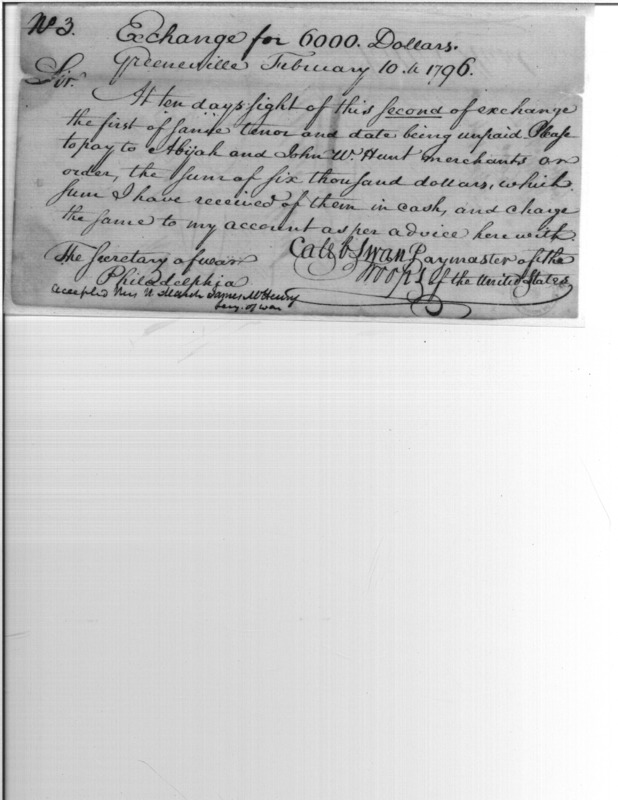 No 3. Exchange for 6000. Dollars.
Greeneville February 10.th 1796.
Sir.
At ten days sight of this second of exchange
the first of same tenor and date being unpaid Please
to pay to Abijah and John W. Hunt merchants or
order, the sum of six thousand dollars, which
sum I have received of them in cash, and charge
the same to my account as per advice here with.
Caleb Swan Paymaster of the
troops of the United States
The Secretary of war
Philadelphia
accepted James McHenry
Secy. of war